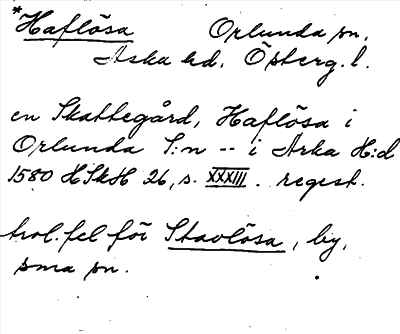 *Haflösa Orlunda sn,
Aska hd, Österg. l.
en Skattegård, Haflösa i
Orlunda S:n -- i Aska H:d
1580 HSkH 26, s. XXXIII. regest.
trol. fel för Stavlösa, by,
sma sn.